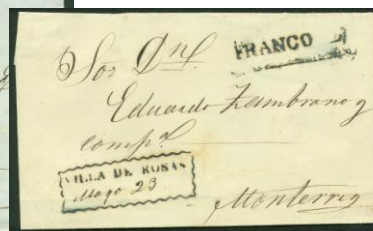 FRANCO
Sor Dn
Eduardo Zambrano y
compa
VILLA DE ROSAS
Mayo 23
Monterrey